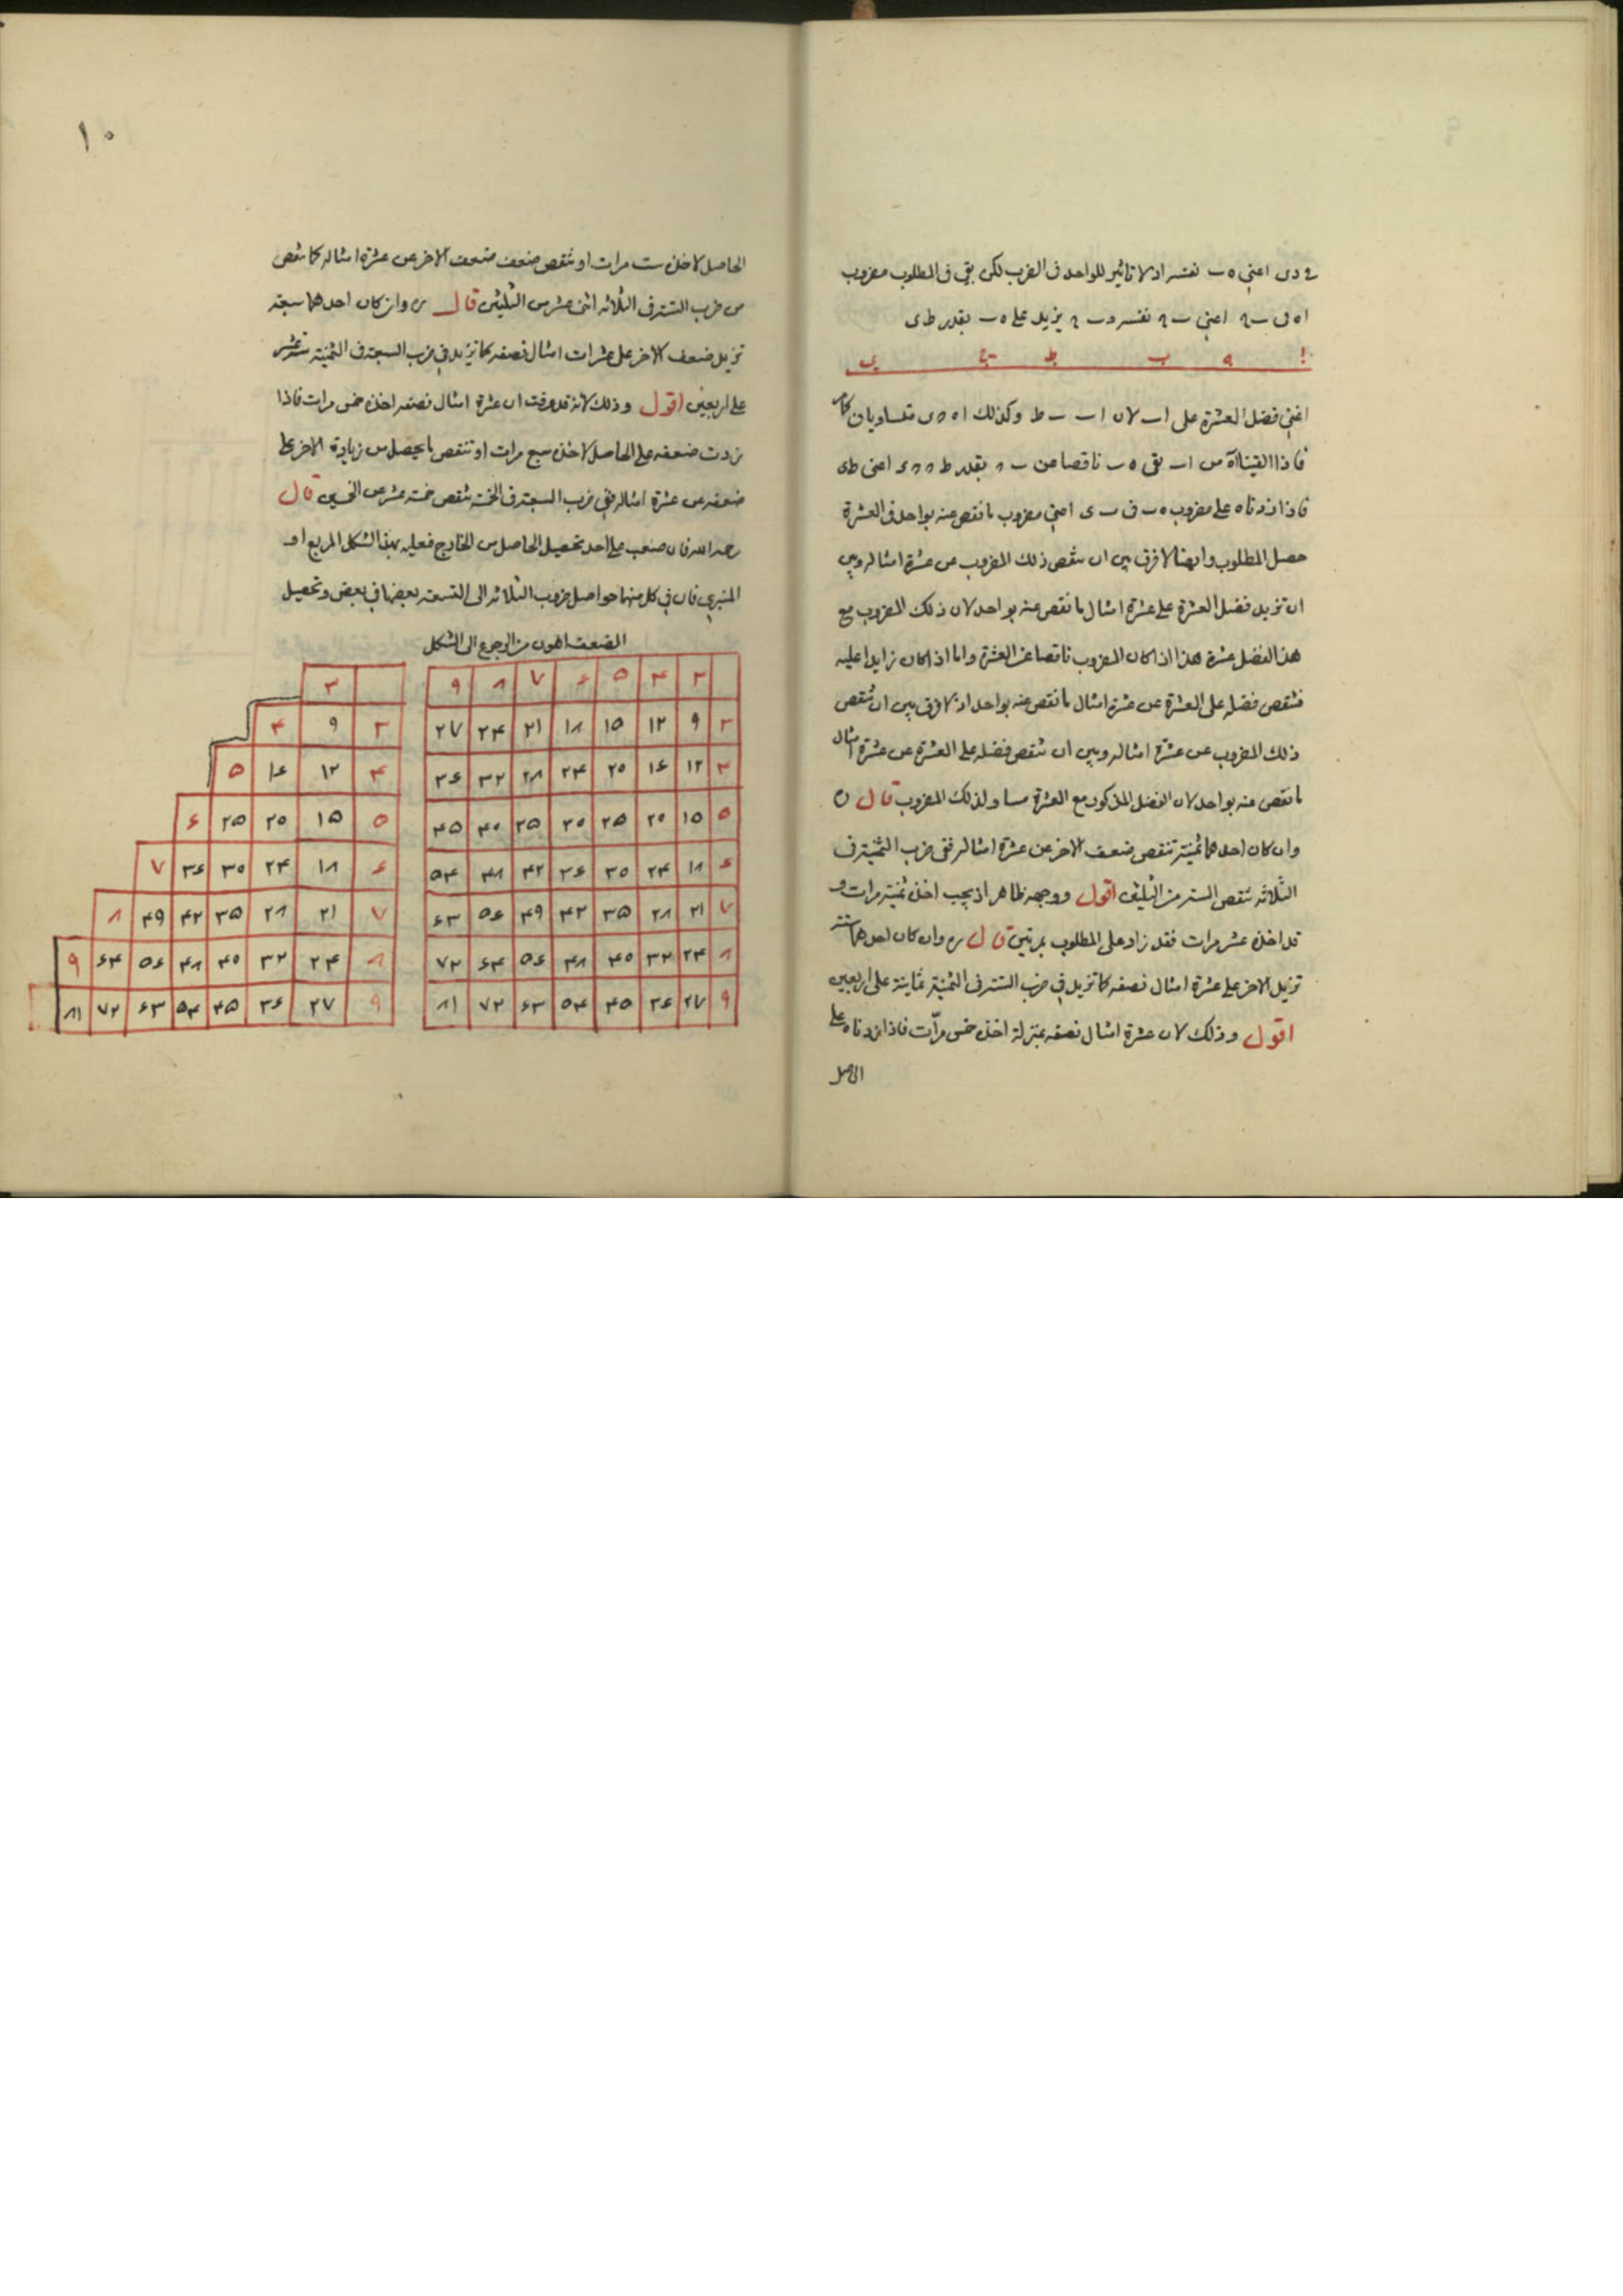 فى دى اعنى ه ب نفسه اذ لا تاثير للواحد فى الضرب لكن بقى فى المطلوب مضروب
اه فى ب اعنى ب نفسه و ب يزيد على ه ب بقدر ط ى
ا ه ب ط ى
اعنى فضل العشرة على اب لان اب ب ط وكذلك اه ى متساويان كما
فاذا القينا اه من اب بقى ه ب ناقصا عن ب بقدر ط اعنى ط ى
فاذا زدناه على مضروب ه ب فى ب ى اعنى مضروب ما نقص منه بواحد فى العشرة
حصل المطلوب وايضا لا فرق بين ان تنقص ذلك المضروب من عشرة امثاله وبين
ان تزيد فضل العشرة على عشرة امثال ما نقص منه بواحد لان ذلك المضروب مع
هذا الفضل عشرة هذا اذا كان المضروب ناقصا عن العشرة واما اذا كان زايدا عليه
فتنقص فضله على العشرة من عشرة امثال ما نقص منه بواحد اذ لا فرق بين ان تنقص
ذلك المضروب من عشرة امثاله وبين ان تنقص فضله على العشرة من عشرة امثال
ما نقص منه بواحد لان الفضل المذكور مع العشرة مساو لذلك المضروب قال ره
وان كان احدهما ثمنية تنقص ضعف الاخر عن عشرة امثاله ففى ضرب الثمنية فى
الثلاثة تنقص الستة من الثلثين اقول ووجهه ظاهر اذ يجب اخذه ثمنية مرات و
قد اخذه عشر مرات فقد زاد على المطلوب بمرتين قال ره وان كان احدهما ستة
تزيد الاخر على عشرة امثال نصفه كما تزيد فى ضرب الستة فى الثمنية ثمانية على اربعين
اقول وذلك لان عشرة امثال نصفه بمنزلة اخذه خمس مرّات فاذا زدناه على
الحاصل
١٠
الحاصل لاخذه ست مرات او تنقص ضعف ضعف الاخر عن عشرة امثاله كما تنقص
من ضرب الستة فى الثلاثة اثنى عشر من الثلثين قال ره وان كان احدهما سبعة
تزيد ضعف الاخر على عشرات امثال نصفه كما تزيد فى ضرب السبعة فى الثمنية ستة عشر
على اربعين اقول وذلك لانه قد عرفت ان عشرة امثال نصفه اخذه خمس مرات فاذا
زدت ضعفه على الحاصل لاخذه سبع مرات او تنقص ما يحصل من زيادة الاخر على
ضعفه من عشرة امثاله ففى ضرب السبعة فى الخمسة تنقص خمسة عشر من الخمسين قال
رحمه الله فان صعب على احد تحصيل الحاصل من الخارج فعليه بهذا الشكل المربع او
المنبرى فان فى كل منهما حواصل ضروب الثلاثة الى التسعة بعضها فى بعض وتحصيل
الضعف اهون من الرجوع الى الشكل
٣ ۴ ۵ ۶ ٧ ٨ ٩
٣ ٩ ١٢ ١۵ ١٨ ٢١ ٢۴ ٢٧
۴ ١٢ ١۶ ٢٠ ٢۴ ٢٨ ٣٢ ٣۶
۵ ١۵ ٢٠ ٢۵ ٣٠ ٣۵ ۴٠ ۴۵
۶ ١٨ ٢۴ ٣٠ ٣۶ ۴٢ ۴٨ ۵۴
٧ ٢١ ٢٨ ٣۵ ۴٢ ۴٩ ۵۶ ۶٣
٨ ٢۴ ٣٢ ۴٠ ۴٨ ۵۶ ۶۴ ٧٢
٩ ٢٧ ٣۶ ۴۵ ۵۴ ۶٣ ٧٢ ٨١
٣
٣ ٩ ۴
۴ ١٢ ١۶ ۵
۵ ١۵ ٢٠ ٢۵ ۶
۶ ١٨ ٢۴ ٣٠ ٣۶ ٧
٧ ٢١ ٢٨ ٣۵ ۴٢ ۴٩ ٨
٨ ٢۴ ٣٢ ۴٠ ۴٨ ۵۶ ۶۴ ٩
٩ ٢٧ ٣۶ ۴۵ ۵۴ ۶٣ ٧٢ ٨١